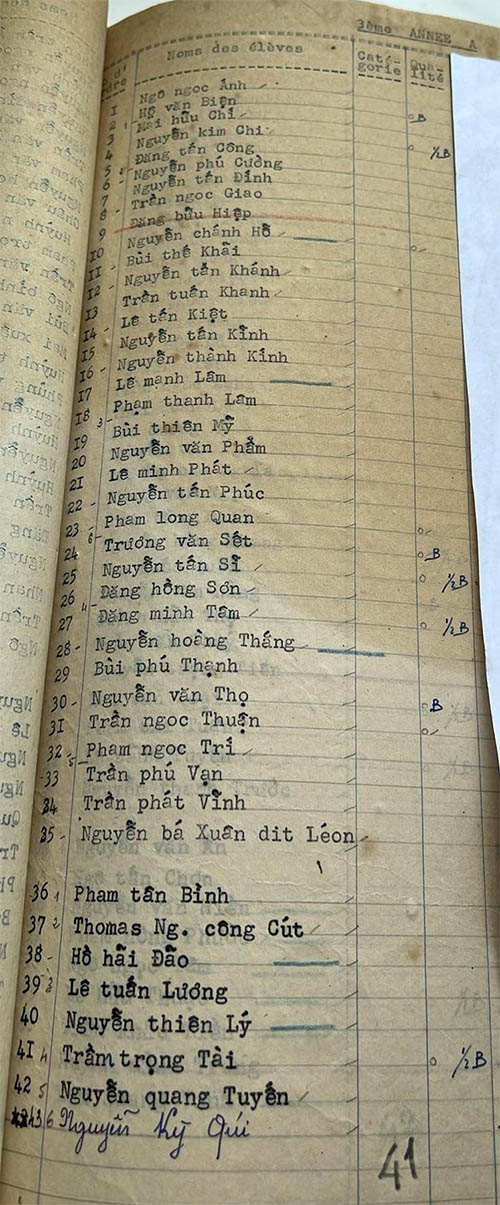 3ème ANNEE A
Noms des élèves Caté- Qua-
gorie lité
1 Ngô ngọc Ánh
2 Hồ văn Biện
3 Mai hữu Chí B
4 Nguyễn kim Chi
5 Đặng tấn Công ½B
6 Nguyễn phú Cường
7 Nguyễn tấn Đính
8 Trần ngọc Giao
9 Đặng bửu Hiệp
10 Nguyễn chánh Hổ
11 Bùi thế Khải
12 Nguyễn tấn Khánh
13 Trần tuấn Khanh
14 Lê tấn Kiệt
15 Nguyễn tấn Kỉnh
16 Nguyễn thành Kỉnh
17 Lê mạnh Lâm
18 Phạm thanh Lam
19 Bùi thiên Mỹ
20 Nguyễn văn Phẩm
21 Lê minh Phát
22 Nguyễn tấn Phúc
23 Phạm long Quan
24 Trương văn Sết B
25 Nguyễn tấn Sĩ ½B
26 Đặng hồng Sơn
27 Đặng minh Tâm ½B
28 Nguyễn hoàng Tháng
29 Bùi phú Thạnh
30 Nguyễn văn Thọ B
31 Trần ngọc Thuận
32 Phạm ngọc Trí
33 Trần phú Vạn
34 Trần phát Vĩnh
35 Nguyễn bá Xuân dit Léon
36 1 Phạm tấn Bỉnh
37 2 Thomas Ng. công Cút
38 Hồ hãi Đão
39 3 Lê tuấn Lương
40 Nguyễn thiên Lý
41 4 Trầm trọng Tài ½B
42 5 Nguyễn quang Tuyến
43 6 Nguyễn Kỳ Qúi
41